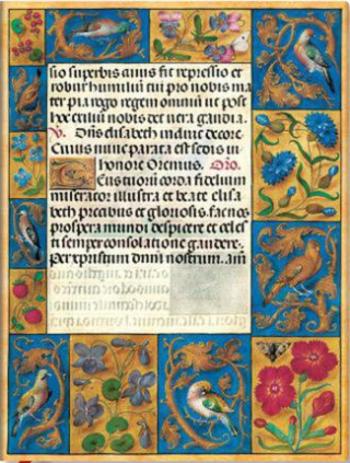 sio superbis anus fit repressio et
robur humiliū tui pro nobis ma
ter pia rogo regem omniū ut post
hoc exiliū nobis det vera gaudia.
V. Dn̄s elisabeth induit decore.
Cuius nunc parata est sedis in
honore Oremus. Orō.
eus tuorū corda fidelium
miserator illustra et beate elisa
beth precibus et gloriosis. fac nos
prospera mundi despicere et celes
ti semper consolatione gaudere.
Per xpristum dnm̄ nostrum. am̄